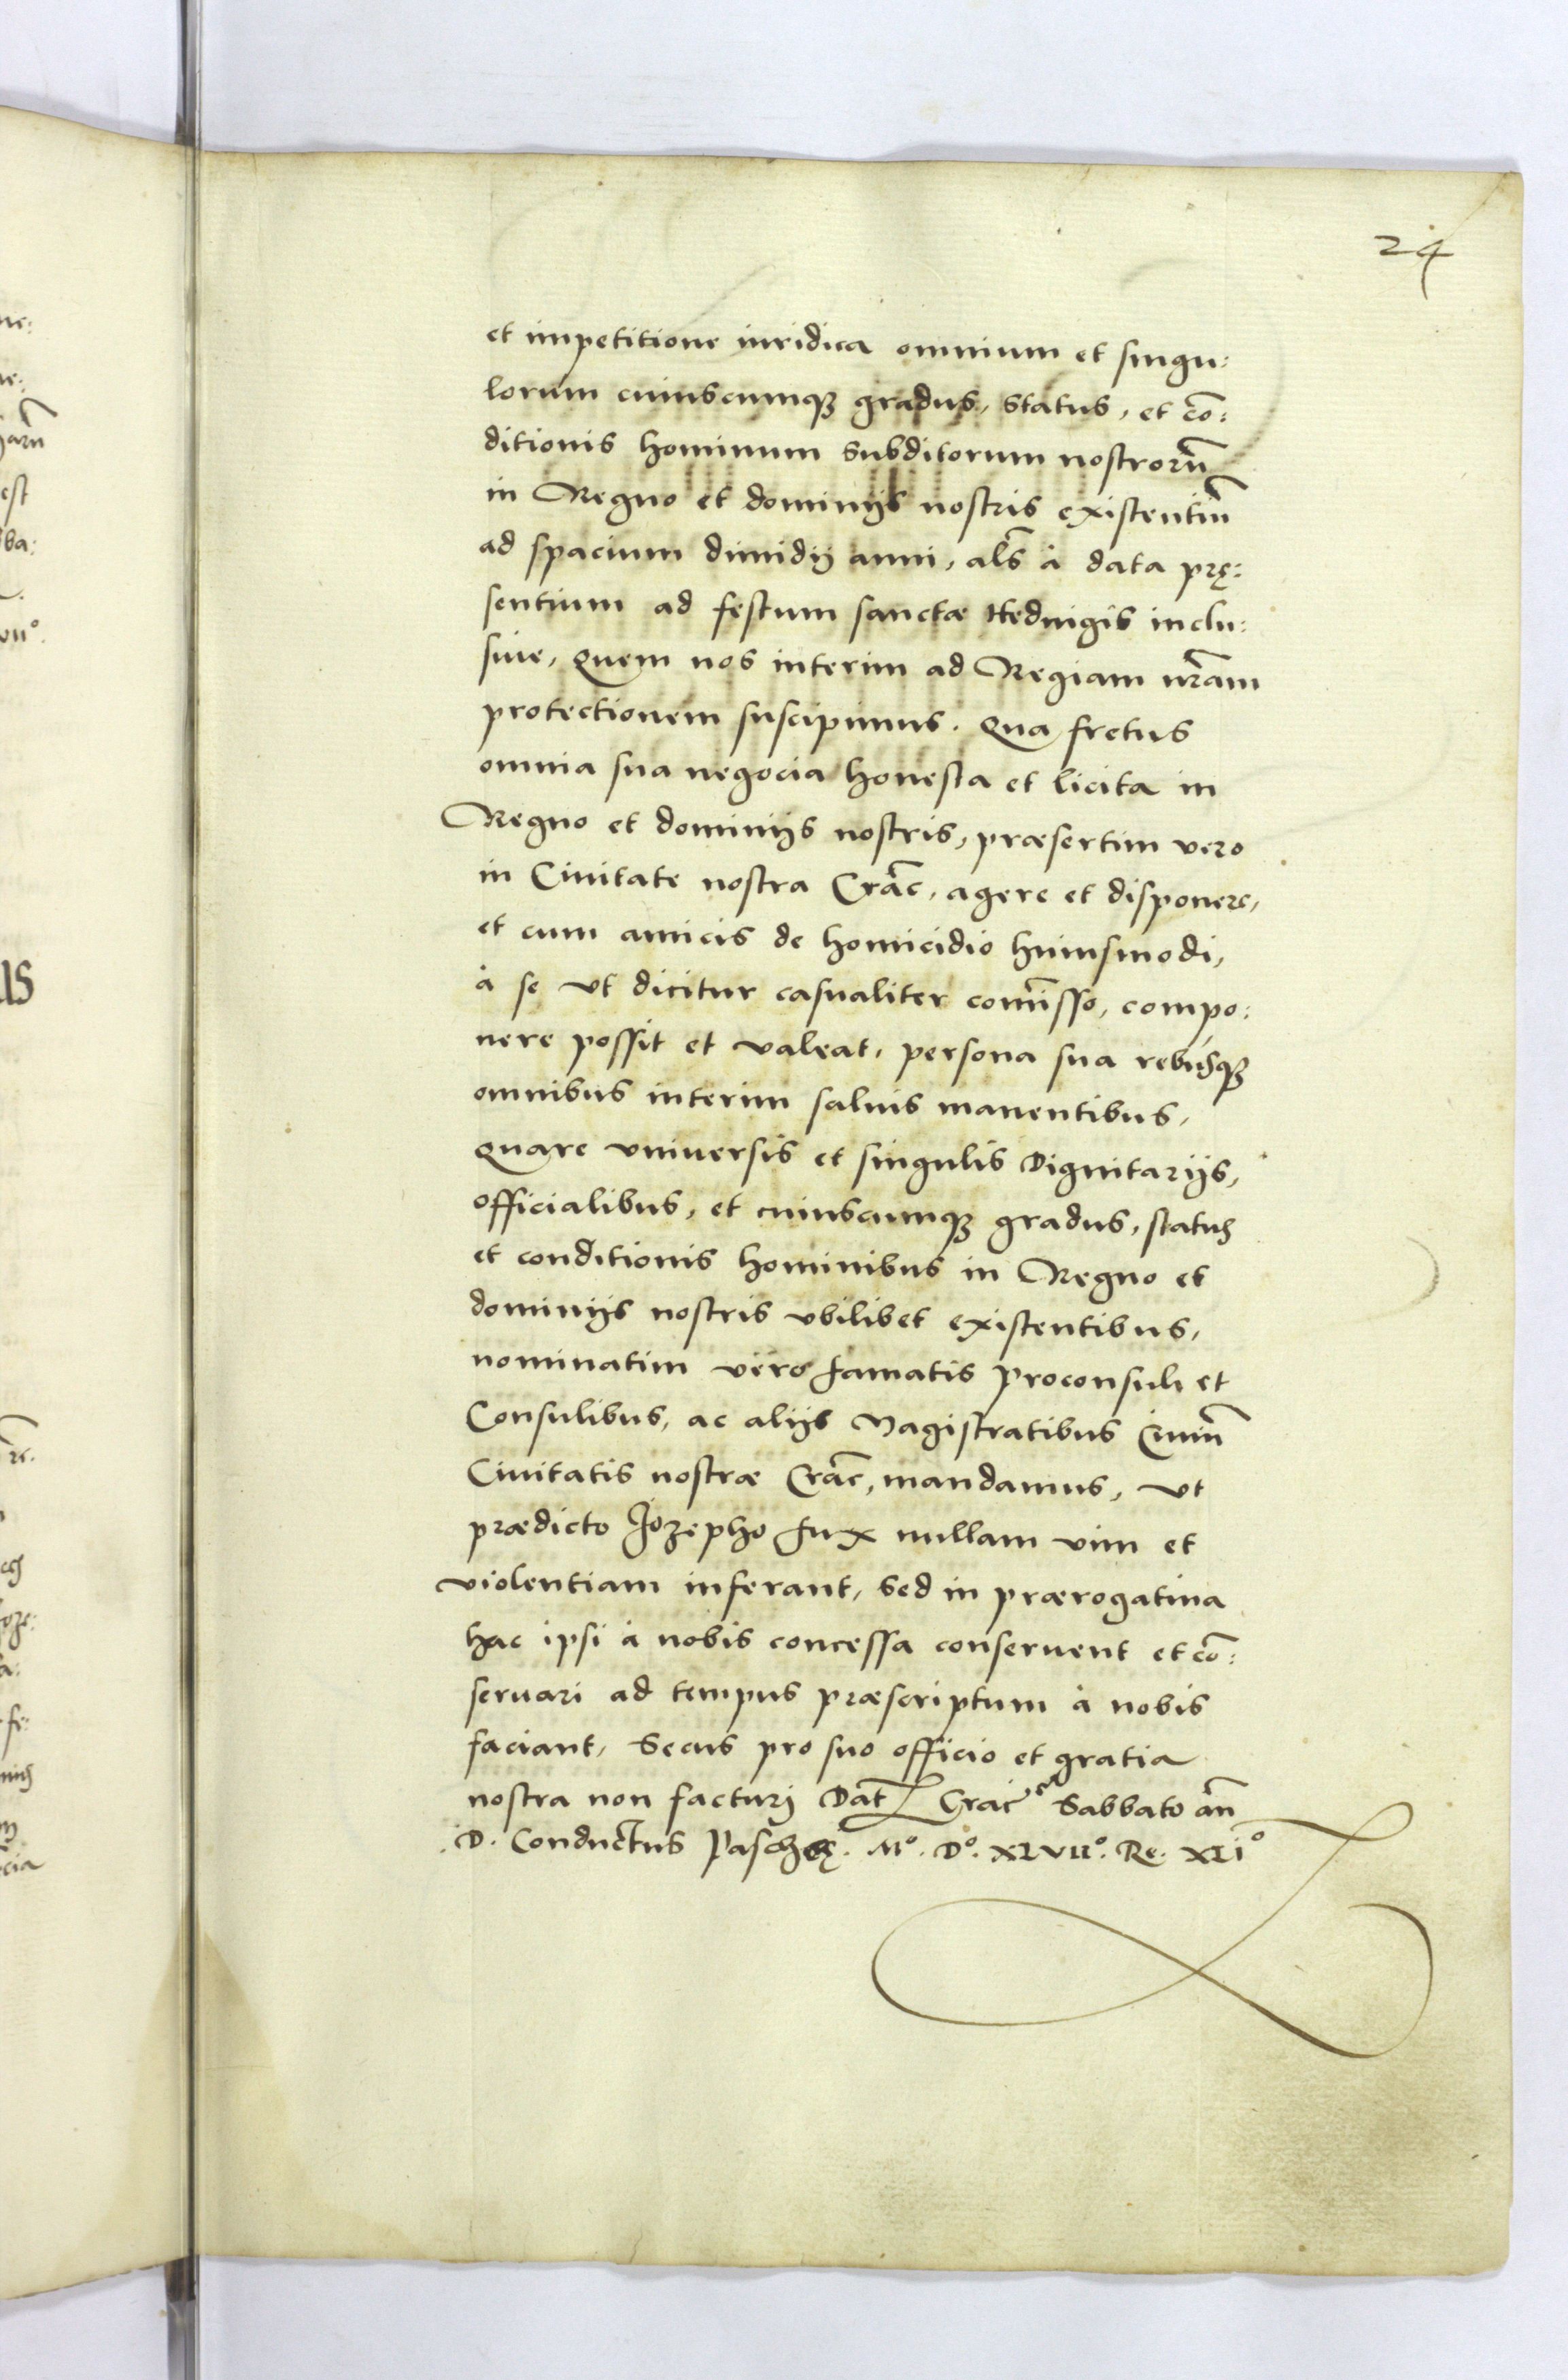 24
et impetitione iuridica omnium et singu:
lorum cuiuscumqꝫ gradus, status, et cō:
ditionis hominum subditorum nostrorū
in Regno et dominijs nostris existentiū
ad spacium dimidij anni, als̄ à data prę:
sentium ad festum sanctæ Heduigis inclu:
siue, quem nos interim ad Regiam nr̄am
protectionem suscipimus. Qua fretus
omnia sua negocia honesta et licita in
Regno et dominijs nostris, præsertim vero
in Ciuitate nostra Crac̄, agere et disponere,
et cum amicis de homicidio huiusmodi,
à se vt dicitur casualiter com̄isso, compo:
nere possit et valeat, persona sua rebusqꝫ
omnibus interim saluis manentibus,
quare vniuersis et singulis Dignitarijs,
officialibus, et cuiuscumqꝫ gradus, status
et conditionis hominibus in Regno et
dominijs nostris vbilibet existentibus,
nominatim vero famatis proconsuli et
Consulibus, ac alijs Magistratibus Ciuiū
Ciuitatis nostræ Crac̄, mandamus, vt
prædicto Jozepho Fux nullam vim et
violentiam inferant, sed in prærogatiua
hac ipsi à nobis concessa conseruent et cō:
seruari ad tempus præscriptum à nobis
faciant, Secus pro suo officio et gratia
nostra non facturj Dat̄ Crac̄ Sabbato an̄
D. Conductus Paschę. Mº. Dº. XLVIIº. Re. XLIº